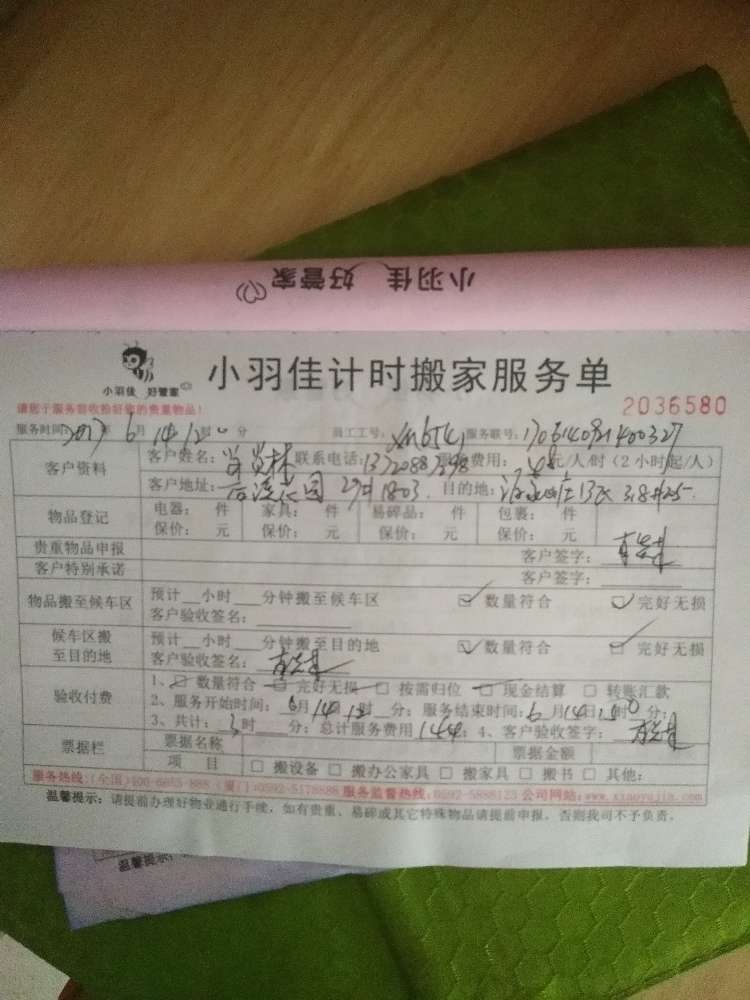 小羽佳 好管家
小羽佳 好管家
小羽佳计时搬家服务单
请您于服务前收拾好您的贵重物品！
2036580
服务时间：2017年6月14日12时0分 员工工号：xm6541 服务联号：
客户资料 客户姓名： 联系电话： 费用：48元/人/时（2小时起/人）
客户地址： 1803 目的地：
物品登记 电器： 件 家具： 件 易碎品： 件 包裹： 件
保价： 元 保价： 元 保价： 元 保价： 元
贵重物品申报 客户签字：
客户特别承诺 客户签字：
物品搬至候车区 预计 小时 分钟搬至候车区 数量符合 完好无损
客户验收签名：
候车区搬至目的地 预计 小时 分钟搬至目的地 数量符合 完好无损
客户验收签名：
验收付费 1、 数量符合 完好无损 按需归位 现金结算 转账汇款
2、服务开始时间：6月14日12时 分；服务结束时间：6月14日15时0分；
3、共计：3时 分；总计服务费用144；4、客户验收签字：
票据栏 票据名称 票据金额
项 目 搬设备 搬办公家具 搬家具 搬书 其他：
服务热线：(全国)400-6655-888 (厦门)0592-5178888 服务监督热线：0592-5888123 公司网站：www.xiaoyujia.com
温馨提示：请提前办理好物业通行手续，如有贵重、易碎或其它特殊物品请提前申报，否则我司不予负责。
温馨提示：